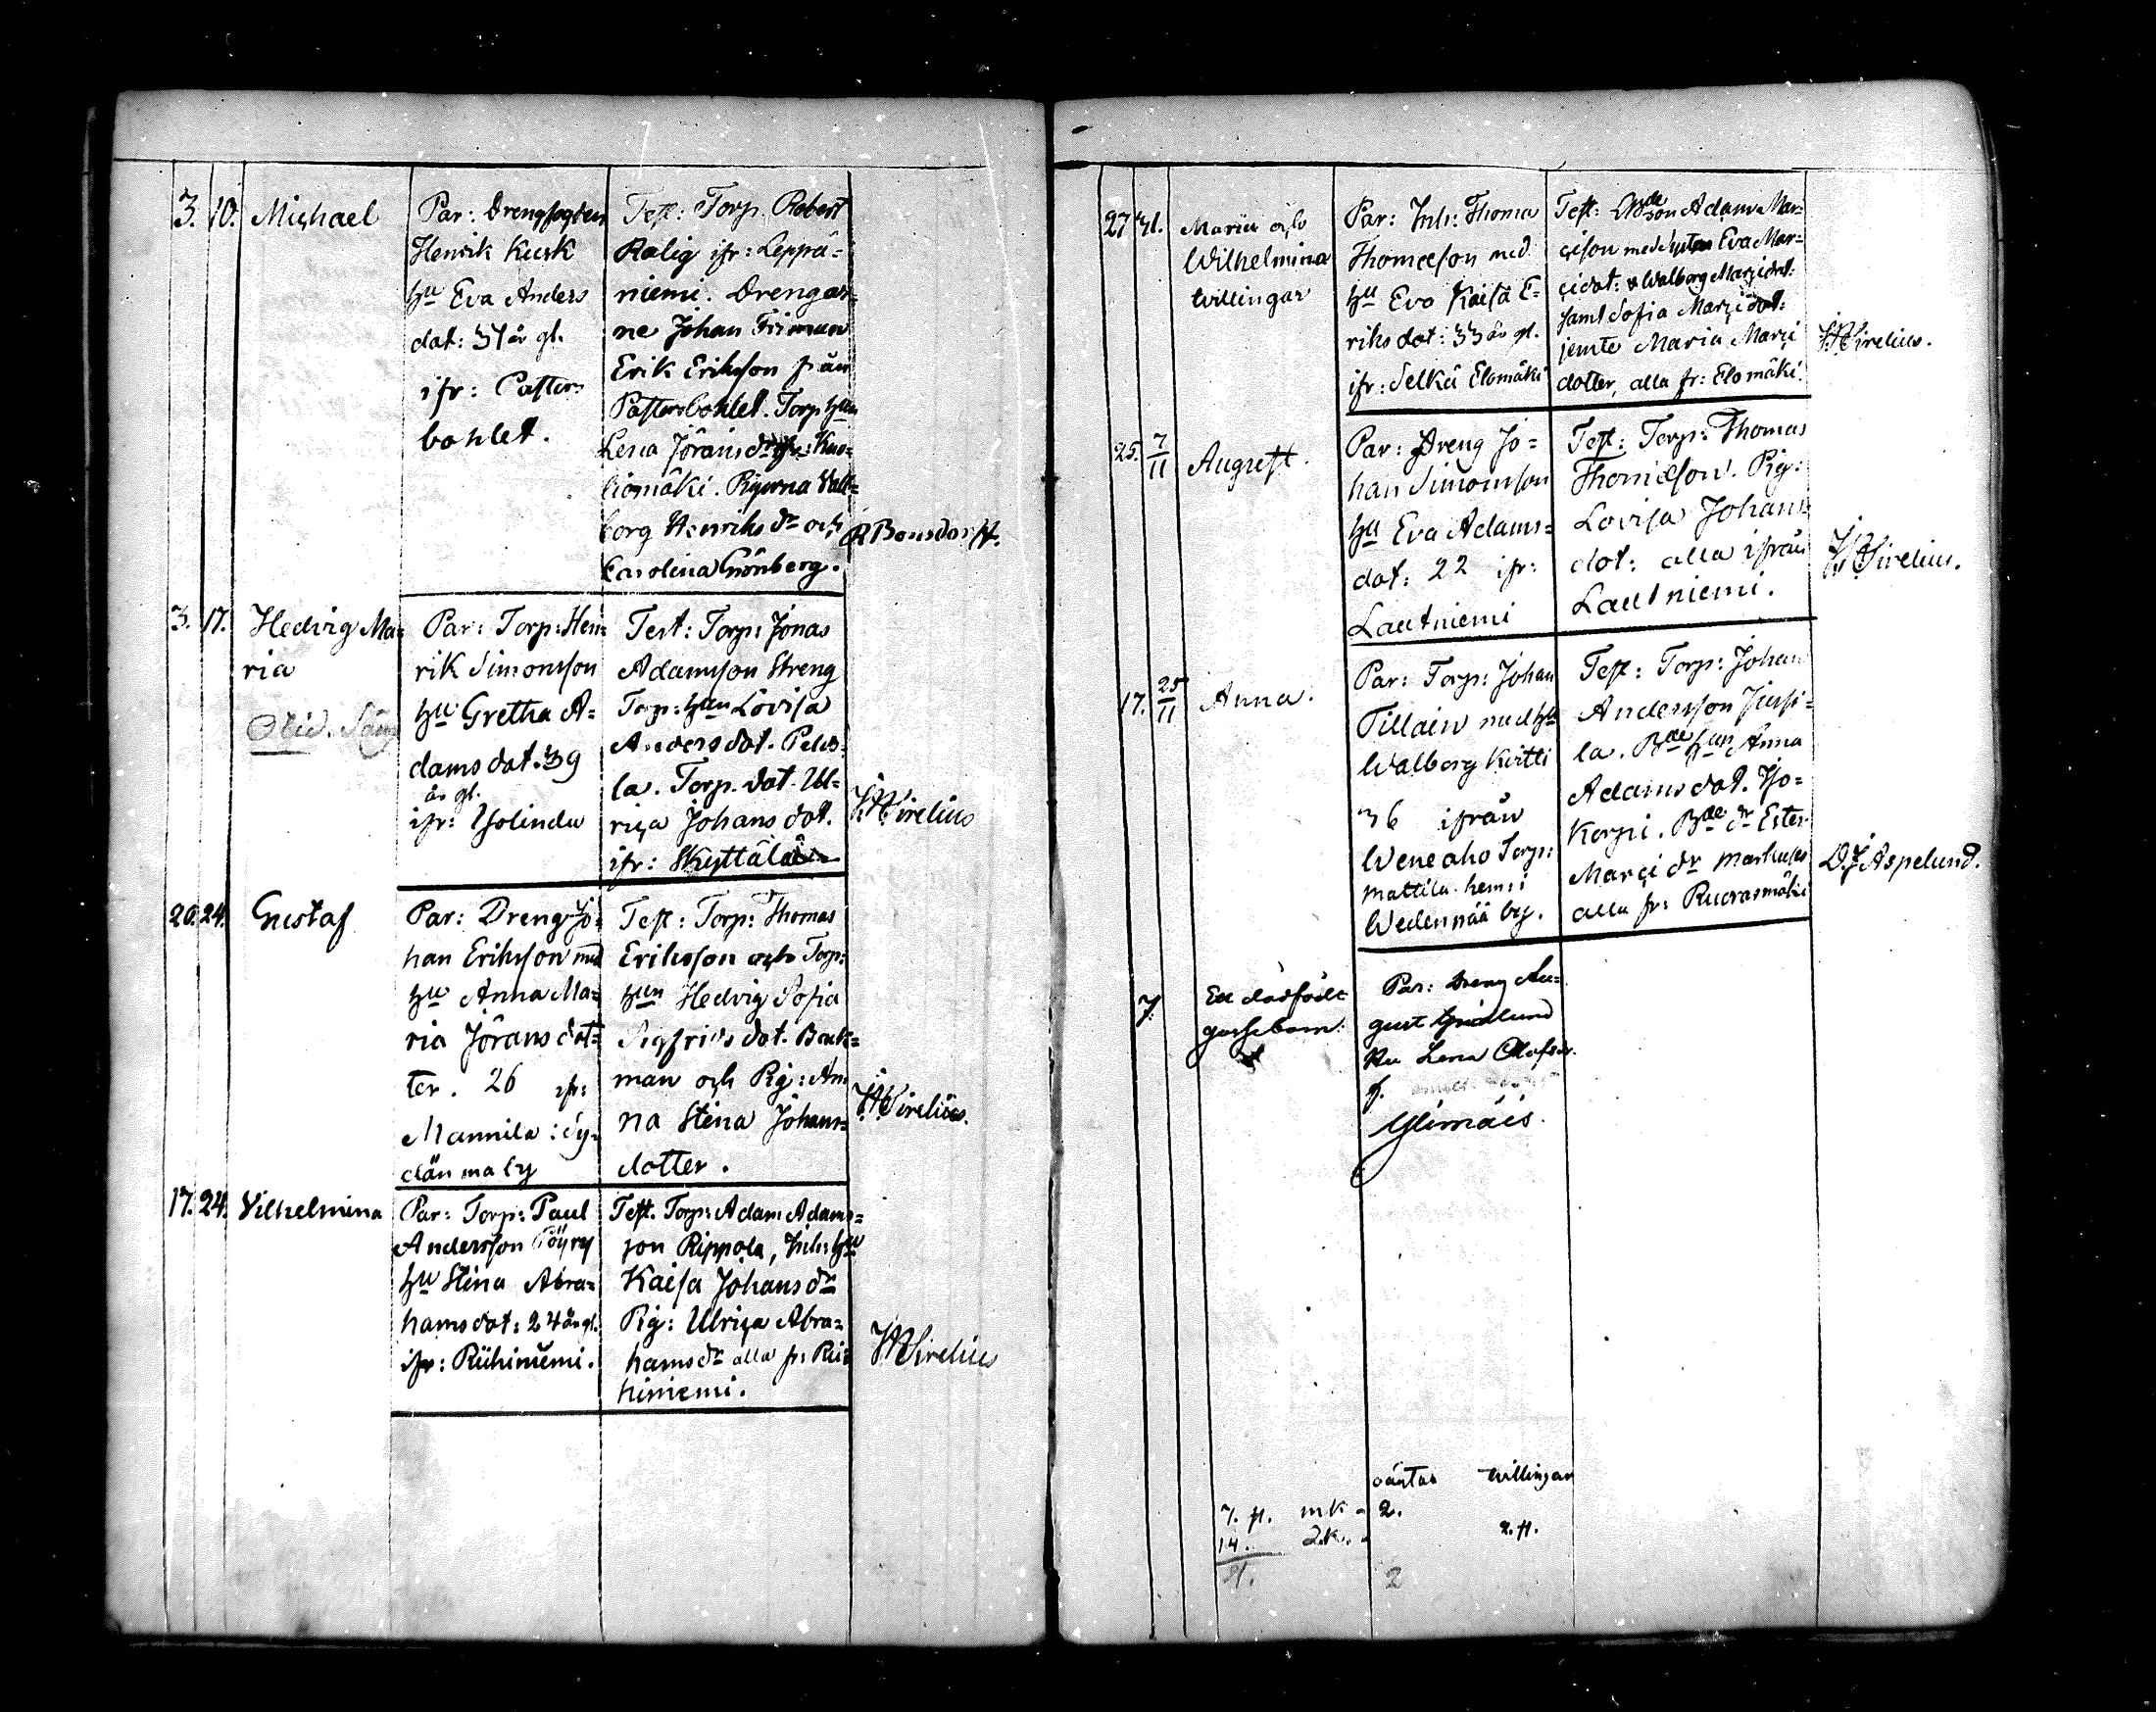 3. 10. Michael
Par: Drengfogden
Henrik Kusk
hu Eva Anders
dat: 37 år gl.
ifr: Pastors
bohlet.
Test: Torp. Robert
Ralig ifr: Leppä=
niemi. Drengar=
ne Johan Friman
Erik Eriksson från
Pastorsbohlet. Torp hun
Lena Jöransdr ifr: Kal=
liomäki. Pigorna Val=
borg Henriks dr och
Carolina Grönberg.
R Bonsdorff.
3. 17. Hedvig Ma=
ria
Par: Torp: Hen=
rik Simonsson
hu Gretha A=
dams dat. 39
år gl.
ifr: Tjolinda
Test: Torp: Jonas
Adamsson Streng
Torp: hun Lovisa
Anders dot.
la. Torp. dot. Ul=
rica Johans dot.
ifr: Skyttälä
Sirelius
20. 24. Gustaf
Par: Dreng Jo=
han Eriksson med
hu Anna Ma=
ria Jörans dot=
ter. 26 ifr:
Mannila: Sy=
dänma by
Test: Torp: Thomas
Eriksson och Torp:
hun Hedvig Sofia
Sigfrids dot. Back=
man och Pig: An=
na Stina Johans=
dotter.
Sirelius.
17. 24. Vilhelmina
Par: Torp: Paul
Andersson Pöyry
hu Stina Abra=
hams dot: 24 år gl.
ifr: Riihiniemi.
Test. Torp: Adam Adams=
son Rippola, Inh: hu
Kaisa Johans dr
Pig: Ulrica Abra=
hams dr alla fr: Rii=
hiniemi.
Sirelius
27 31. Maria och
Wilhelmina
tvillingar
Par: Inh: Thomas
Thomasson med
hu Eva Kaisa E=
riks dot: 33 år gl.
ifr: Selkä Elomäki
Test: Bdeson Adam Mar=
cison med systern Eva Mar=
cidot: & Walborg Marcidot:
samt Sofia Marcidot:
jemte Maria Marci
dotter, alla fr: Elomäki.
Sirelius.
25. 7/11 August.
Par: Dreng Jo=
han Simonsson
hu Eva Adams=
dot: 22 ifr:
Lautniemi
Test: Torp: Thomas
Thomasson. Pig:
Lovisa Johans
dot: alla ifrån
Lautniemi.
Sirelius.
17. 25/11 Anna.
Par: Torp: Johan
Tillain med hu
Walborg Kirtti
36 ifrån
Weneaho Torp:
Mattila hem: i
Wedennää by.
Test: Torp: Johan
Andersson Jussi=
la. Bde hun Anna
Adams dot. Iso=
Korpi. Bde dr Ester
Marci dr Markulas
alla fr: Ruorasmäki
D J Aspelund.
7. Ett dödfödt
gossebarn.
Par: Dreng Au=
gust
hu Lena Olofsdr.
f.
Ylimäis.
oäkta tvillingar
7. fl. mk - 2.
14. qk. - 2. fl.
21. 2